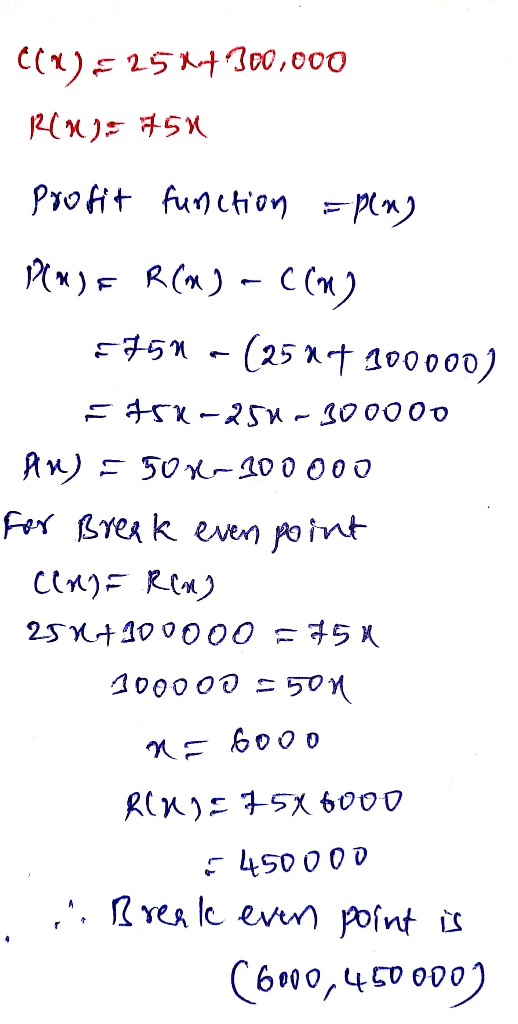 C(x) = 25x+300,000
R(x) = 75x
Profit function = p(x)
P(x) = R(x) - C(x)
= 75x - (25x+300000)
= 75x-25x-300000
P(x) = 50x-300000
For Break even point
C(x) = R(x)
25x+300000 = 75x
300000 = 50x
x = 6000
R(x) = 75x6000
= 450000
∴ Break even point is
(6000, 450000)